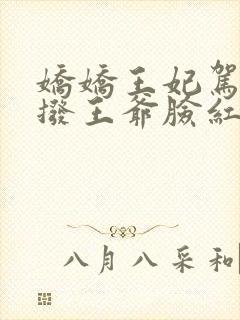 嬌嬌王妃駕
撥王爺臉紅
八月八采和